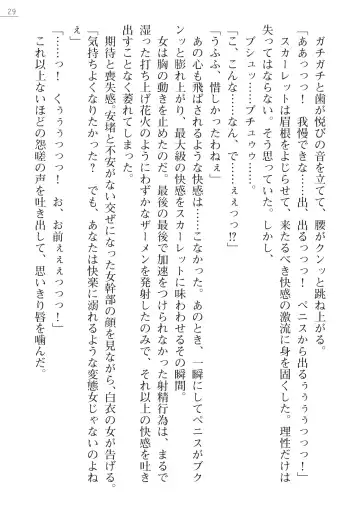 29
ガチガチと歯が悦びの音を立てて、腰がクンッと跳ね上がる。
「ああっっっ！　我慢できな……出、出るっっっ！　ペニスから出るぅぅっっっ！」
スカーレットは眉根をよじらせて、来たるべき快感の激流に身を固くした。理性だけは
失ってはいけない。そう思っていた。しかし、
プシュッ……プチュゥゥ……。
「こ、こんな……なん、で……ぇぇっっ!?」
「うふふ、惜しかったわねぇ」
あの心も飛ばされるような快感は……こなかった。あのとき、一瞬にしてペニスがブク
ンッと膨れ上がり、最大級の快感をスカーレットに味わわせるその瞬間。
女は胸の動きを止めたのだ。最後の最後で加速をつけられなかった射精行為は、まるで
湿った打ち上げ花火のようにわずかなザーメンを発射したのみで、それ以上の快感を吐き
出すことなく萎れてしまった。
期待と喪失感。安堵と不安がない交ぜになった女幹部の顔を見ながら、白衣の女が告げる。
「気持ちよくなりたかった？　でも、あなたは快楽に溺れるような変態女じゃないのよね
ぇ」
「……っ！　くぅぅうっっっ！　お、お前ぇぇぇっっっ！」
これ以上ないほどの怨嗟の声を吐き出して、思いきり唇を噛んだ。